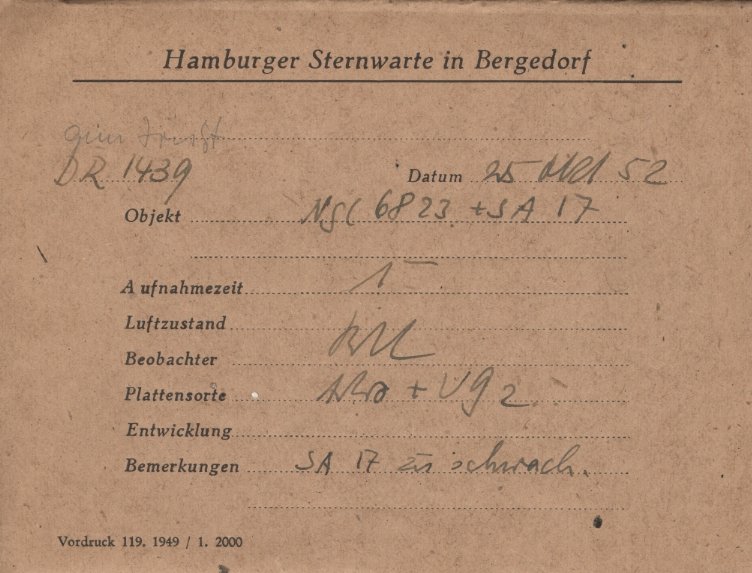 Hamburger Sternwarte in Bergedorf
DR 1439 Datum 25 Okt 52
Objekt NGC 6823 + SA 17
Aufnahmezeit 1
Luftzustand
Beobachter
Plattensorte + VG 2
Entwicklung
Bemerkungen SA 17 zu schwach.
Vordruck 119. 1949 / 1. 2000